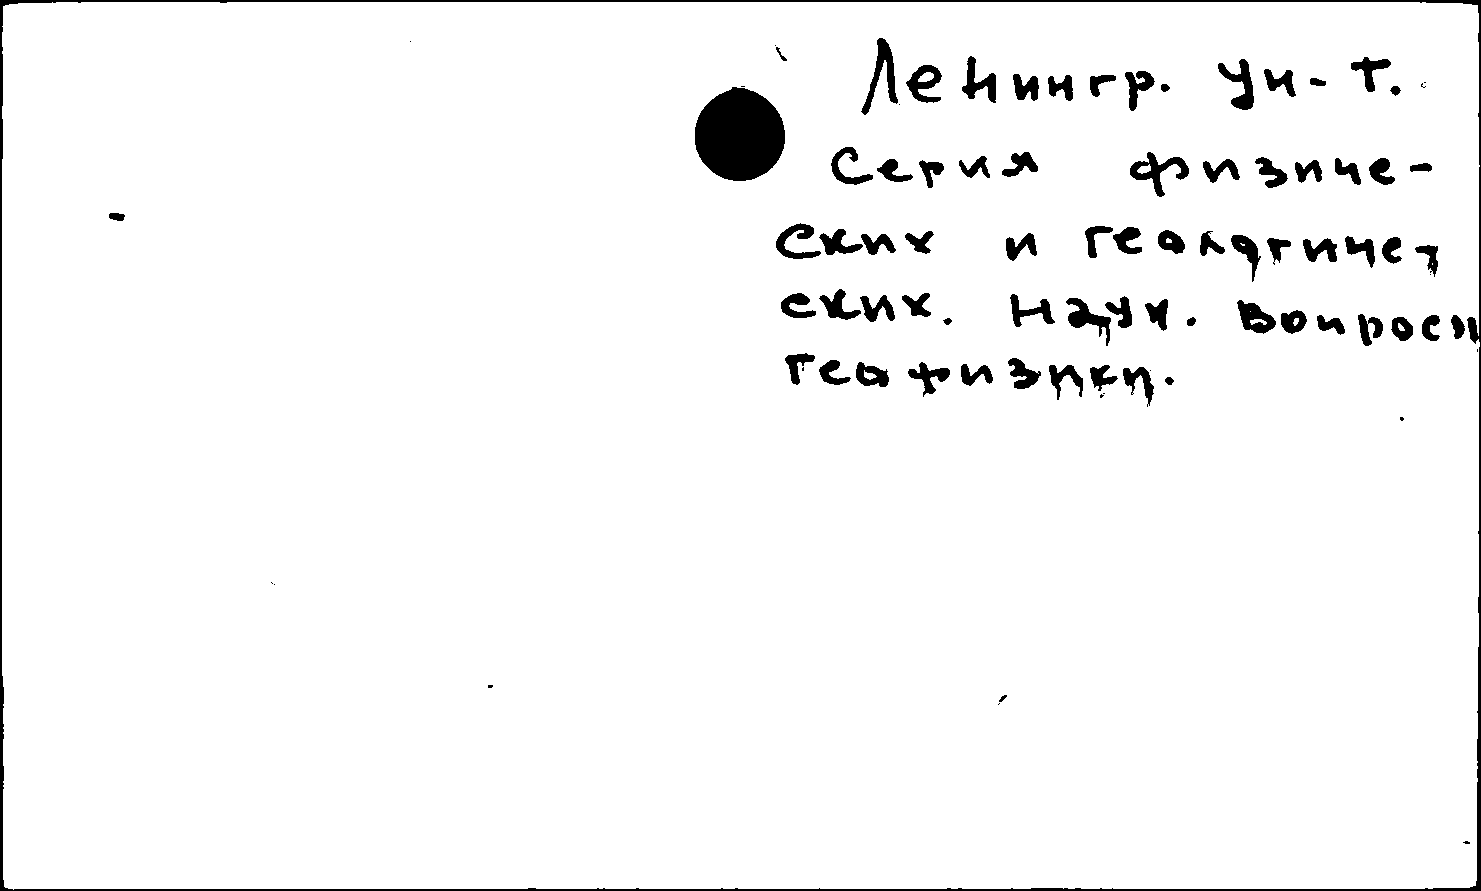 Ленингр. Ун-т.
Серия физиче-
ских и геологичес-
ских. наук. Вопросы
геофизики.